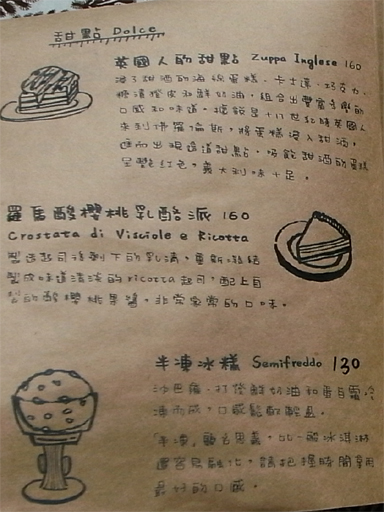 甜點 Dolce
英國人的甜點 Zuppa Inglese 160
浸了甜酒的海綿蛋糕、卡士達、巧克力、
糖漬橙皮和鮮奶油，組合出豐富多層的
口感和味道。據說是十八世紀時英國人
來到佛羅倫斯，將蛋糕浸入甜酒，
進而出現這道甜點，吸飽甜酒的蛋糕
呈艷紅色，義大利味十足。
羅馬酸櫻桃乳酪派 160
Crostata di Visciole e Ricotta
製造起司後剩下的乳清，重新凝結
製成味道清淡的ricotta起司，配上自
製的酸櫻桃果醬，非常家常的口味。
半凍冰糕 Semifreddo 130
沙巴雍、打發鮮奶油和蛋白霜冷
凍而成，口感鬆軟輕盈。
「半凍」顧名思義，比一般冰淇淋
還容易融化，請把握時間享用
最好的口感。